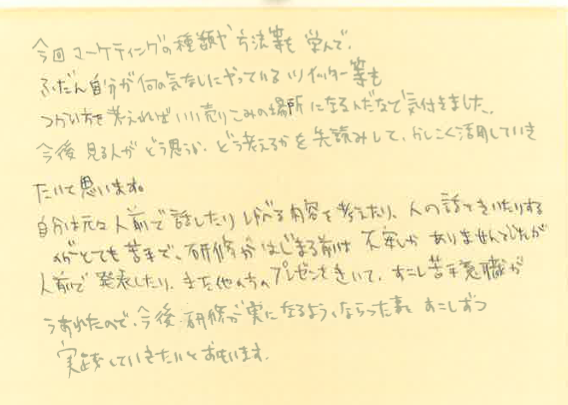 今回マーケティングの種類や方法等を学んで、
ふだん自分が何の気なしにやっているツイッター等も
つかい方を考えればいい売りこみの場所になるんだなと気付きました。
今後見る人がどう思うか、どう考えるかを先読みして、かしこく活用していき
たいと思います。
自分は元々人前で話したりしゃべる内容を考えたり、人の話をきいたりする
のがとても苦手で、研修がはじまる前は不安しかありませんでしたが
人前で発表したり、また他の方のプレゼンをきいて、すこし苦手意識が
うすれたので、今後研修が実になるよう、ならった事をすこしずつ
実践していきたいとおもいます。